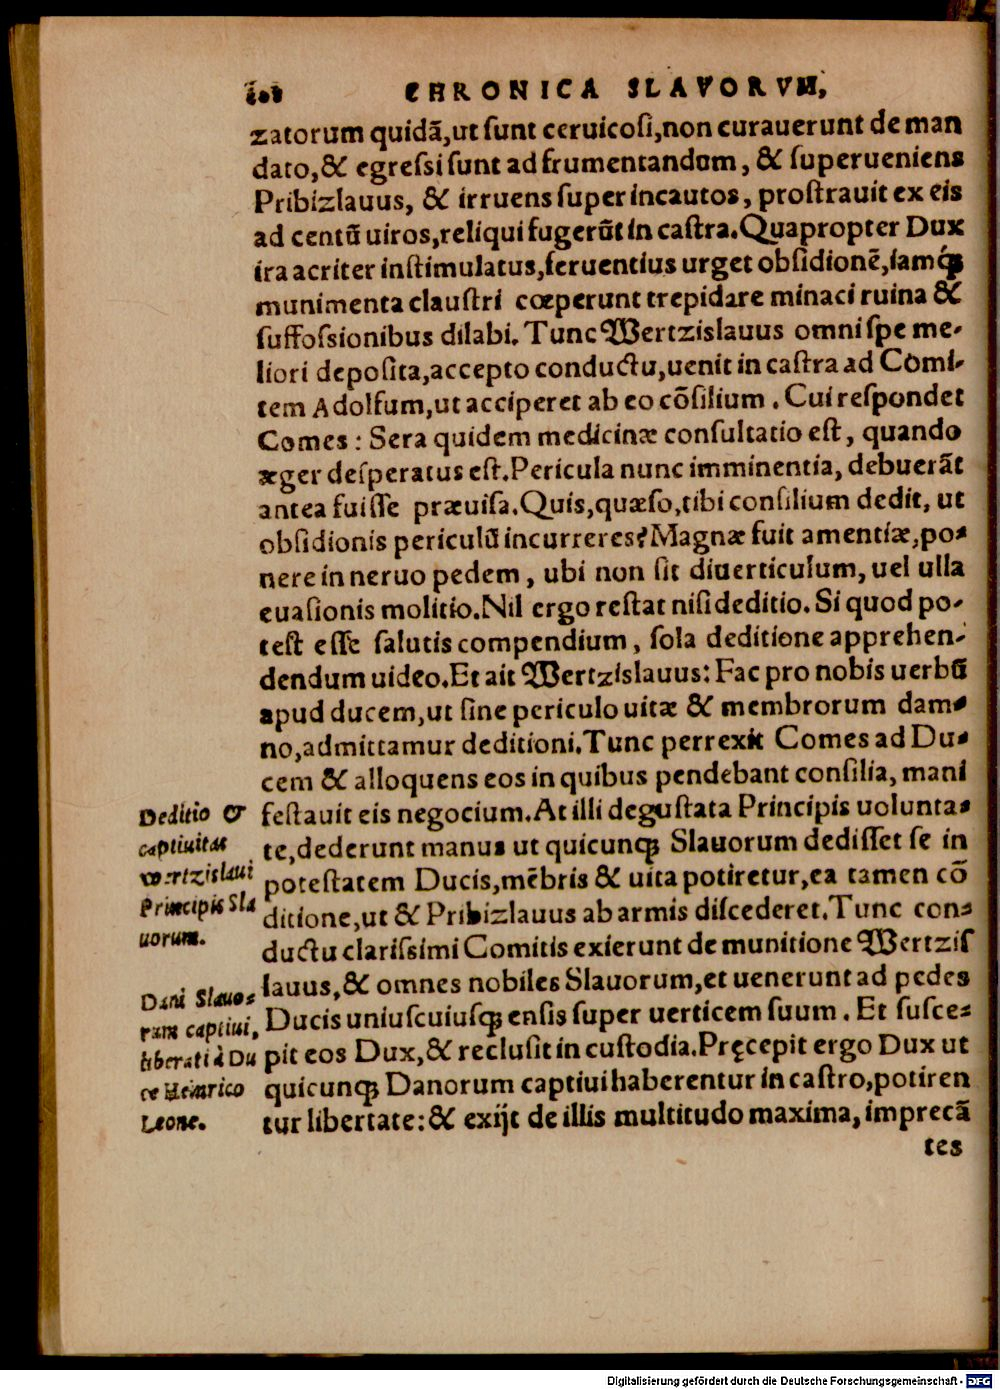 108 CHRONICA SLAVORVM,
zatorum quidã,ut ſunt ceruicoſi,non curauerunt de man
dato,& egreſſi ſunt ad frumentandum, & ſuperueniens
Pribizlauus, & irruens ſuper incautos, proſtrauit ex eis
ad centũ uiros,reliqui fugerũt in caſtra.Quapropter Dux
ira acriter inſtimulatus,feruentius urget obſidionẽ,iamq́ꝫ
munimenta clauſtri cœperunt trepidare minaci ruina &
ſuffoſsionibus dilabi. Tunc Wertzislauus omni ſpe me-
liori depoſita,accepto conductu,uenit in caſtra ad Comi-
tem Adolfum,ut acciperet ab eo cõſilium . Cui reſpondet
Comes : Sera quidem medicinæ conſultatio eſt, quando
æger deſperatus eſt.Pericula nunc imminentia, debuerãt
antea fuiſſe præuiſa.Quis,quæſo,tibi conſilium dedit, ut
obſidionis periculũ incurreres? Magnæ fuit amentiæ,po-
nere in neruo pedem, ubi non ſit diuerticulum, uel ulla
euaſionis molitio.Nil ergo reſtat niſi deditio. Si quod po-
teſt eſſe ſalutis compendium, ſola deditione apprehen-
dendum uideo.Et ait Wertzislauus: Fac pro nobis uerbũ
apud ducem,ut ſine periculo uitæ & membrorum dam-
no,admittamur deditioni.Tunc perrexit Comes ad Du-
cem & alloquens eos in quibus pendebant conſilia, mani
feſtauit eis negocium.At illi deguſtata Principis uolunta-
te,dederunt manus ut quicunqꝫ Slauorum dediſſet ſe in
poteſtatem Ducis,mẽbris & uita potiretur,ea tamen cõ
ditione,ut & Pribizlauus ab armis diſcederet.Tunc con-
ductu clariſsimi Comitis exierunt de munitione Wertziſ
lauus,& omnes nobiles Slauorum,et uenerunt ad pedes
Ducis uniuſcuiuſqꝫ enſis ſuper uerticem ſuum . Et ſuſce-
pit eos Dux,& recluſit in cuſtodia.Pręcepit ergo Dux ut
quicunqꝫ Danorum captiui haberentur in caſtro,potiren
tur libertate: & exijt de illis multitudo maxima, imprecã
tes
Deditio &
captiuitas
Wertzislaui
Principis Sla
uorum.
Dani Slauo-
rum captiui,
liberati à Du
ce Heinrico
Leone.
Digitalisierung gefördert durch die Deutsche Forschungsgemeinschaft - DFG